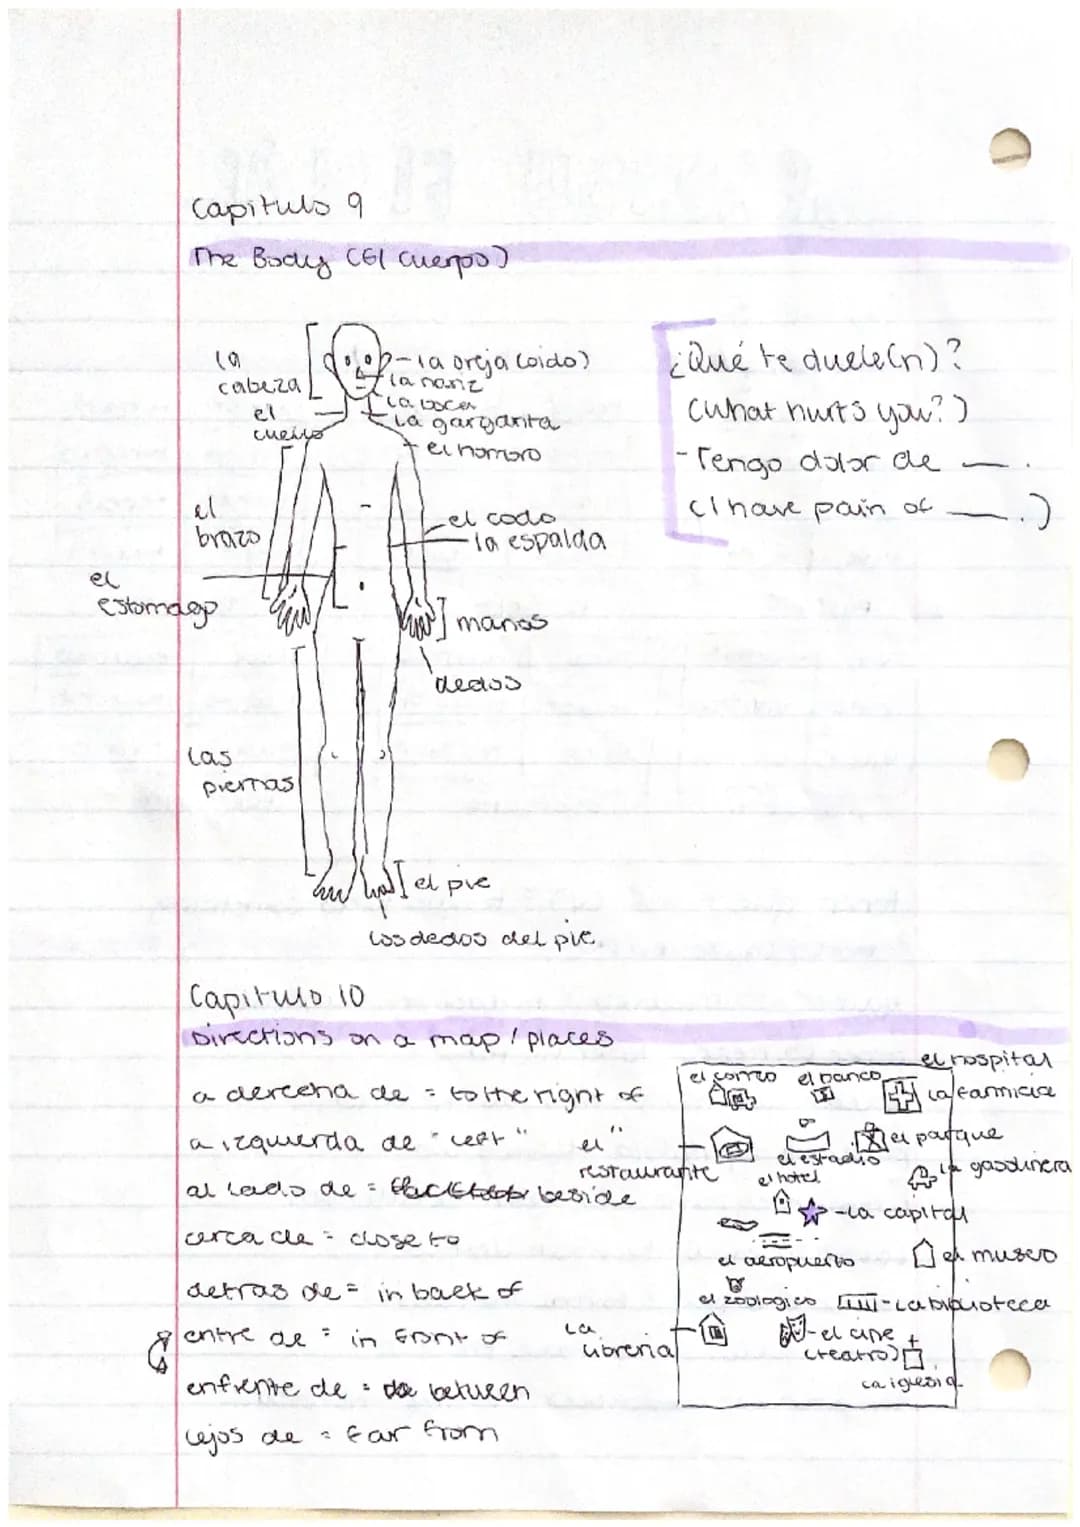 Capitulo 9
The Body (El cuerpo)
la
cabeza
el
cuello
la oreja (oido)
la nariz
la boca
la garganta
el homoro
el
brazo
el codo
la espalda
el
estomago
manos
dedos
las
piernas
el pie
los dedos del pie
¿Qué te duele(n)?
(what hurts you?)
- Tengo dolor de ___.
(I have pain of ___.)
Capitulo 10
Directions on a map / places
a dercena de = to the right of
a izquierda de " left "
al lado de = beside
cerca de = close to
detras de = in back of
entre de = in front of
enfrente de = between
lejos de = far from
el hospital
el correo
el banco
la farmicia
el "
restaurante
el estadio
el parque
la gasolinera
el hotel
la capital
el aeropuerto
el museo
el zoologico
la biblioteca
la
libreria
el cine
(teatro)
la iglesia